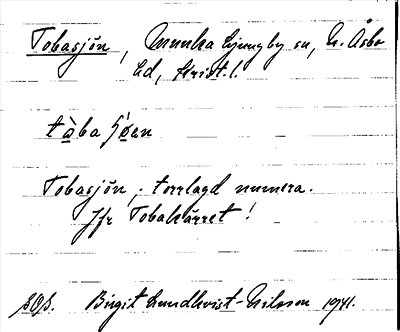 Tobasjön, Munka Ljungby sn, N. Åsbo
hd, Krist. l.
tòba sjöen
Tobasjön, torrlagd numera.
Jfr Tobakärret!
Birgit Lundkvist-Nilsson 1941.